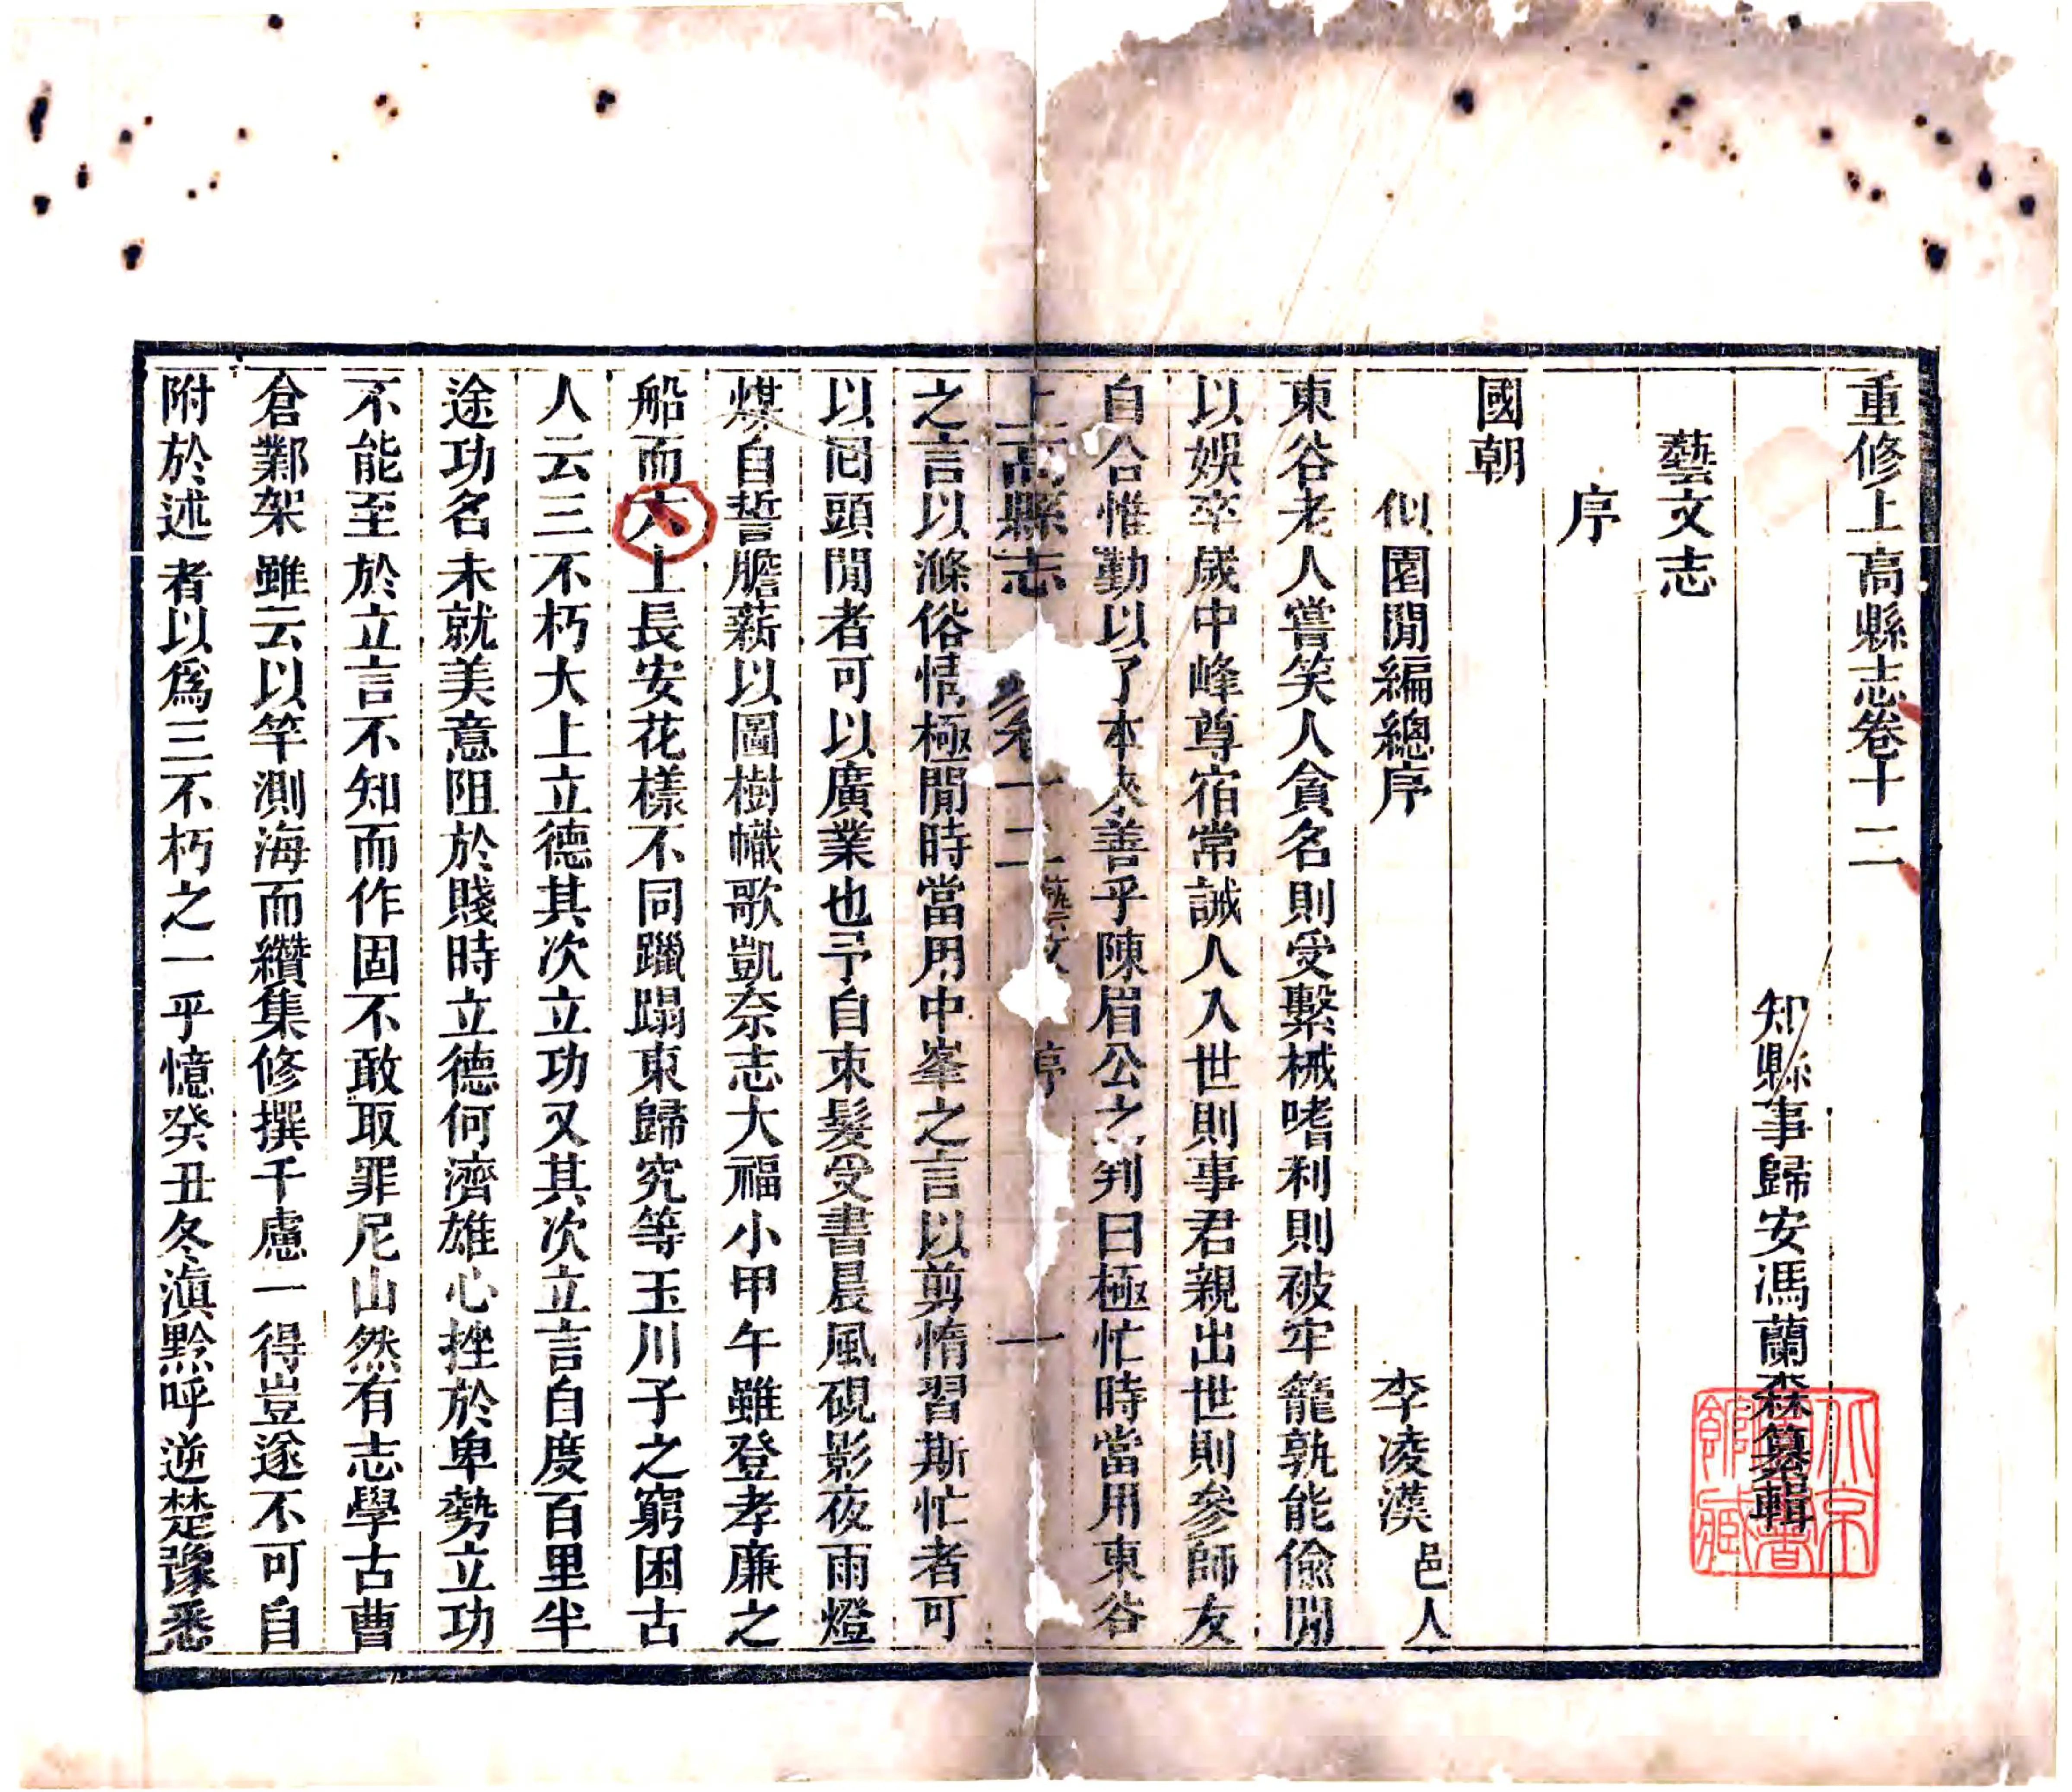 重修上高縣志卷十二
知縣事歸安馮蘭森纂輯
藝文志
序
國朝
似園閒編總序 李凌漢邑人
東谷老人嘗笑人貪名則受繫械嗜利則被牢籠孰能偸閒
以娛卒歲中峰尊宿常誡人人世則事君親出世則參師友
自合惟勤以了本夾善乎陳眉公之判曰極忙時當用東谷
上高縣志 卷十二 藝文 序 一
之言以滌俗情極閒時當用中峯之言以剪惰習斯忙者可
以囘頭閒者可以廣業也予自束髮受書晨風硯影夜雨燈
煤自誓膽薪以圖樹幟歌凱奈志大福小甲午雖登孝廉之
船而六上長安花樣不同躐蹋東歸究等玉川子之窮困古
人云三不朽大上立德其次立功又其次立言自度百里半
途功名未就美意阻於賤時立德何濟雄心挫於卑勢立功
不能至於立言不知而作固不敢取罪尼山然有志學古曹
倉鄴架雖云以竿測海而纘集修撰千慮一得豈遂不可自
附於述者以爲三不朽之一乎憶癸丑冬滇黔呼逆楚豫悉
北京圖書館藏